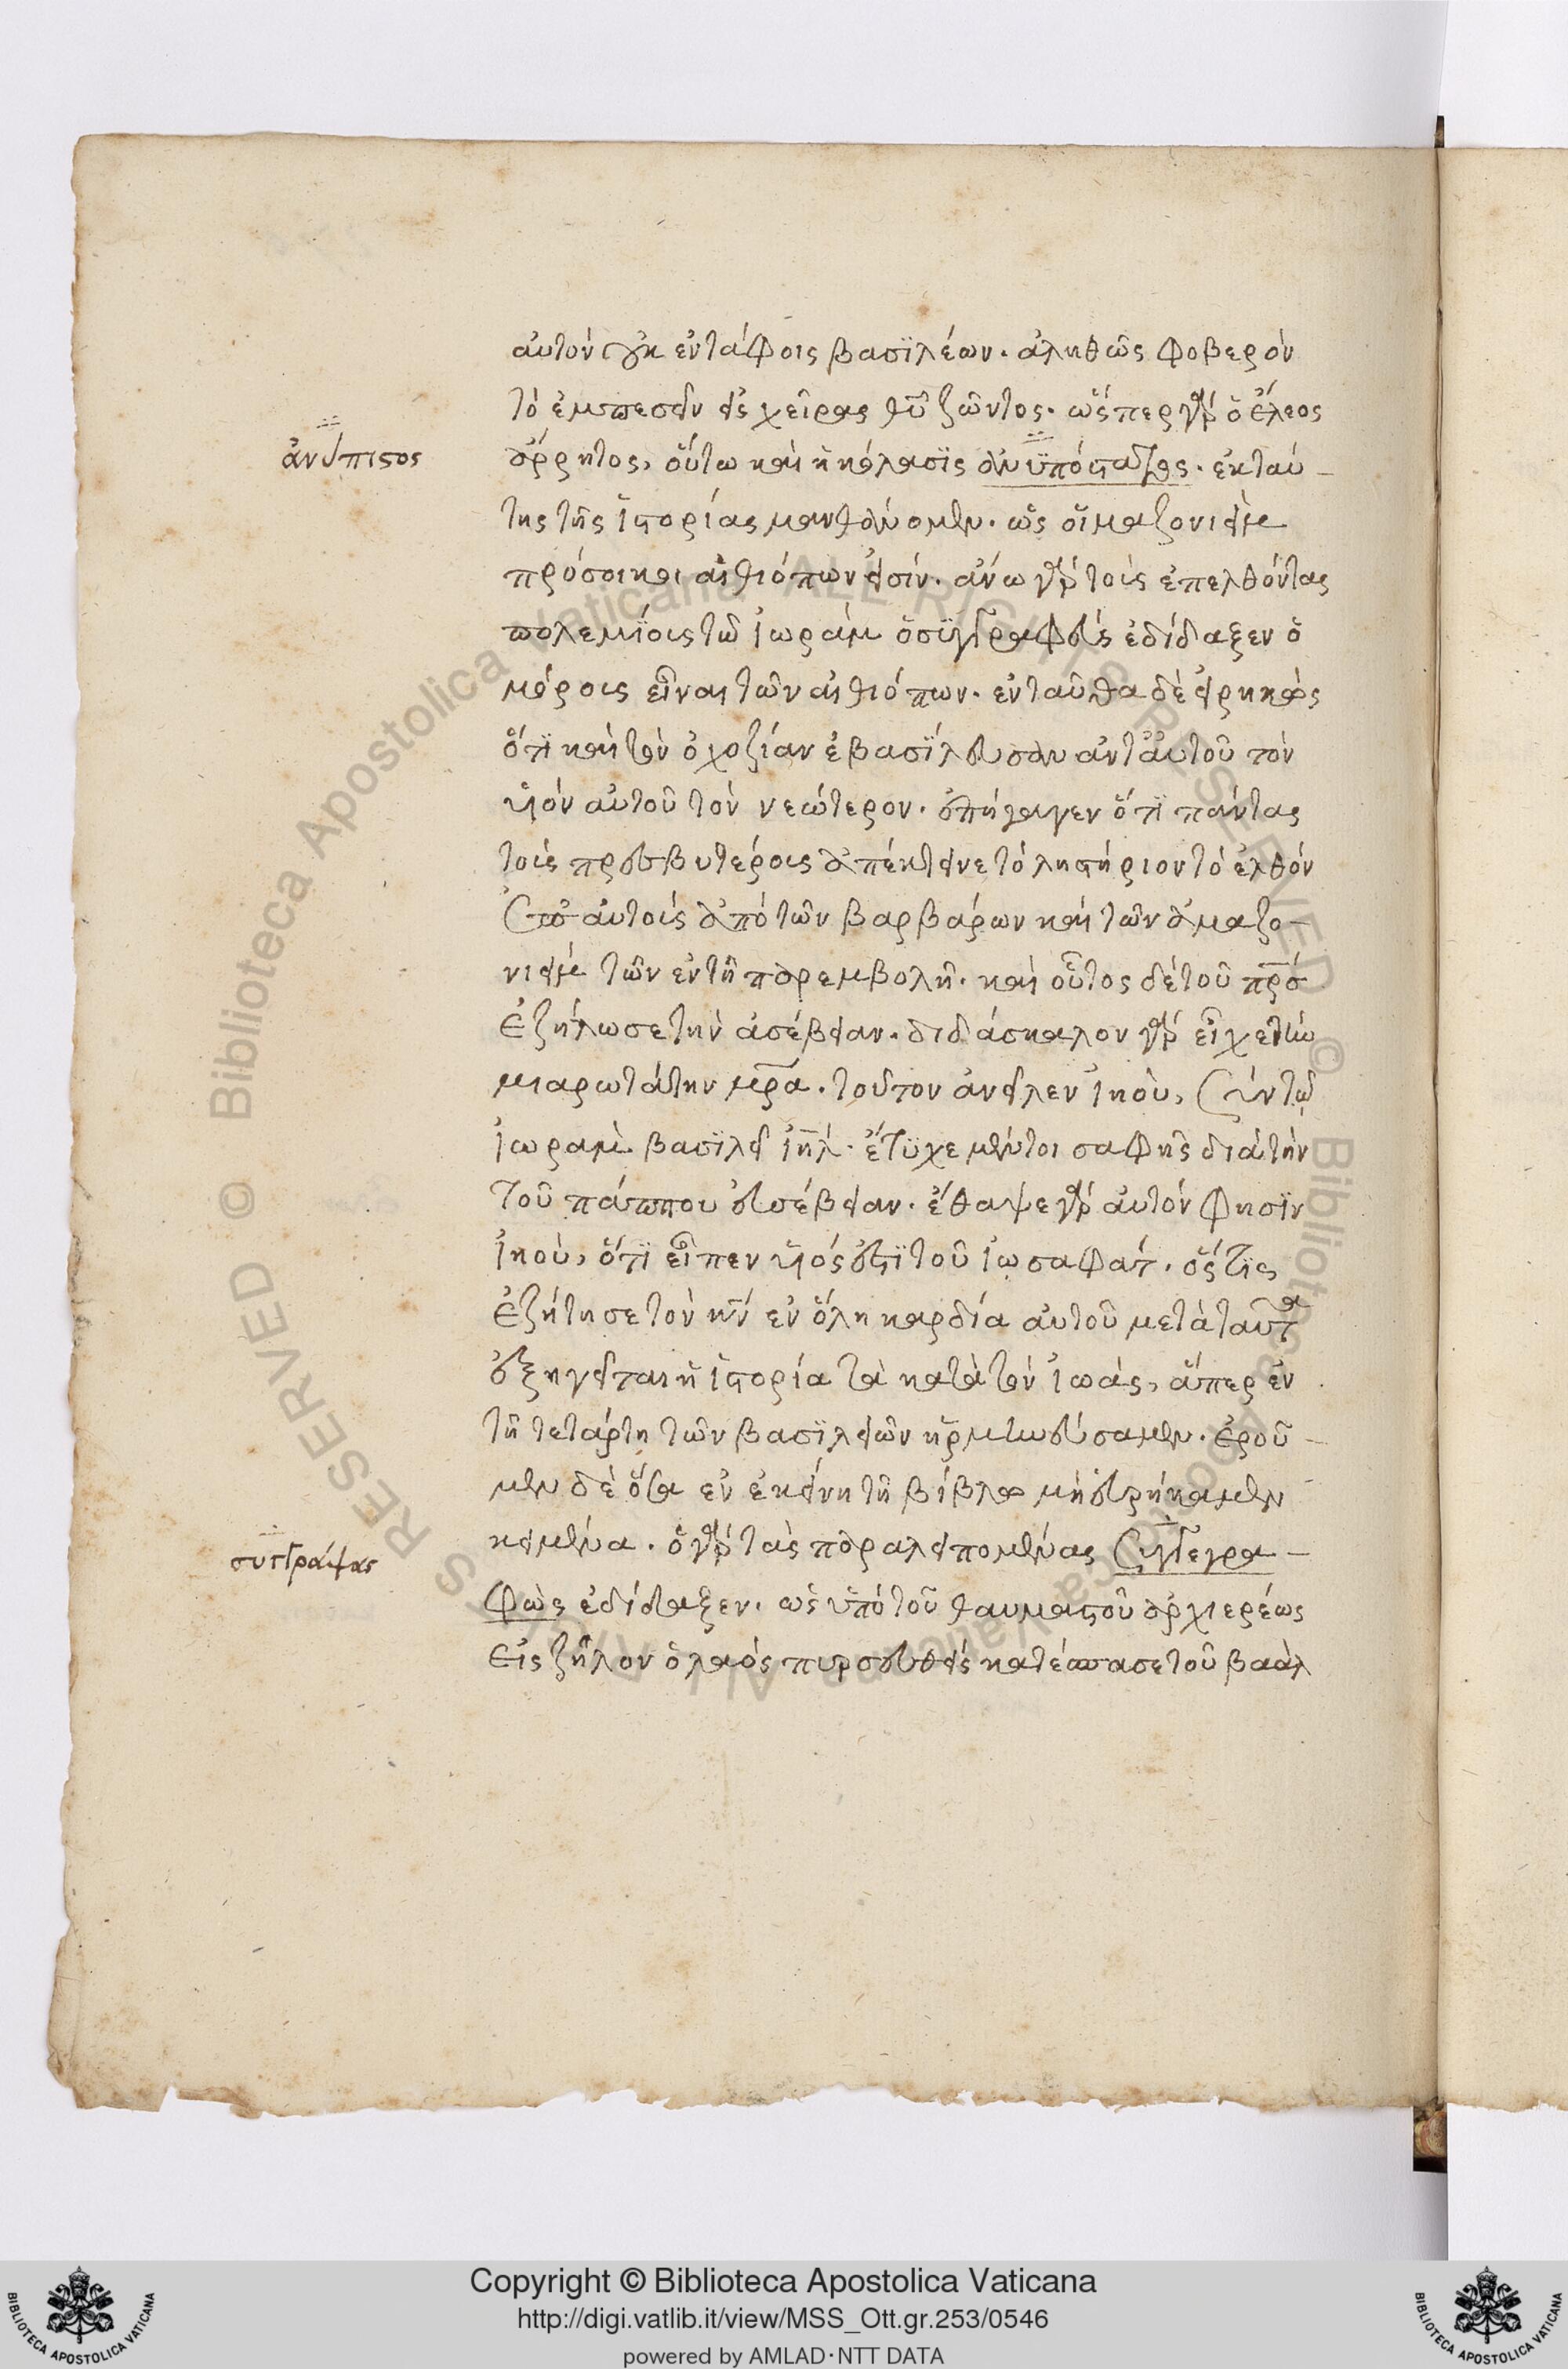 αὐτὸν οὐκ ἐν τάφοις βασϊλέων. ἀληθῶς φοβερὸν
τὸ ἐμπεσεῖν εἰς χεῖρας θῦ ζῶντος. ὥσπερ γὰρ ὁ ἔλεος
ἄρρητος, οὕτω καὶ ἡ κόλασϊς ἀνϋπόστατος. ἐκ ταύ-
ἀνύπιστος
της τῆς ἱστορίας μανθάνομεν. ὡς οἱ μαζονιεὶμ
πρόσοικοι αἰθιόπων εἰσίν. ἄνω γὰρ τοὺς ἐπελθόντας
πολεμΐους τῶ ἰωρὰμ ὁ σϋγγραφεὺς ἐδίδαξεν ὁ
μόρους εἶναι τῶν αἰθιόπων. ἐνταῦθα δὲ εἰρηκὼς
ὅτϊ καὶ τὸν ὀχοζίαν ἐβασΐλευσαν ἀντ' αὐτοῦ τὸν
υἱὸν αὐτοῦ τὸν νεώτερον. ἐπήγαγεν ὅτϊ πάντας
τοὺς πρεσβυτέρους ἀπέκτεινε τὸ ληστήριον τὸ ἐλθὸν
ἐπ' αὐτοὺς ἀπὸ τῶν βαρβάρων καὶ τῶν ἀμαζο-
νιεὶμ τῶν ἐν τῆ παρεμβολῆ. καὶ οὗτος δὲ τοῦ πρσ
ἐζήλωσε τὴν ἀσέβειαν. διδάσκαλον γὰρ εἶχε τὴν
μιαρωτάτην μρα. τοῦτον ἀνεῖλεν ἰηοὺ, σὺν τῶ
ἰωρὰμ βασϊλεῖ ἰηλ. ἔτϋχε μέντοι σαφῆς διὰ τὴν
τοῦ πάππου εὐσέβειαν. ἔθαψε γὰρ αὐτὸν φησϊν
ἰηοὺ, ὅτϊ εἶπεν υἱός ἐστϊ τοῦ ἰωσαφάτ. ὅστϊς
ἐζήτησε τὸν κν ἐν ὅλη καρδία αὐτοῦ μετὰ ταῦτα
ἐξηγεῖται ἡ ἱστορία τὰ κατὰ τὸν ἰωὰς, ἅπερ ἐν
τῆ τετάρτη τῶν βασϊλειῶν ἡρμηνεύσαμεν. ἐροῦ-
μεν δὲ ὅσα ἐν ἐκείνη τῆ βίβλω μὴ εὑρήκαμεν
κείμενα. ὁ γὰρ τὰς παραλειπομένας συγγεγρα-
συγγράψας
φὼς ἐδίδαξεν. ὡς ὑπὸ τοῦ θαυμαστοῦ ἀρχιερέως
εἰς ζῆλον ὁ λαὸς πυρσευθεὶς κατέσπασε τοῦ βαὰλ
Copyright © Biblioteca Apostolica Vaticana
http://digi.vatlib.it/view/MSS_Ott.gr.253/0546
powered by AMLAD·NTT DATA